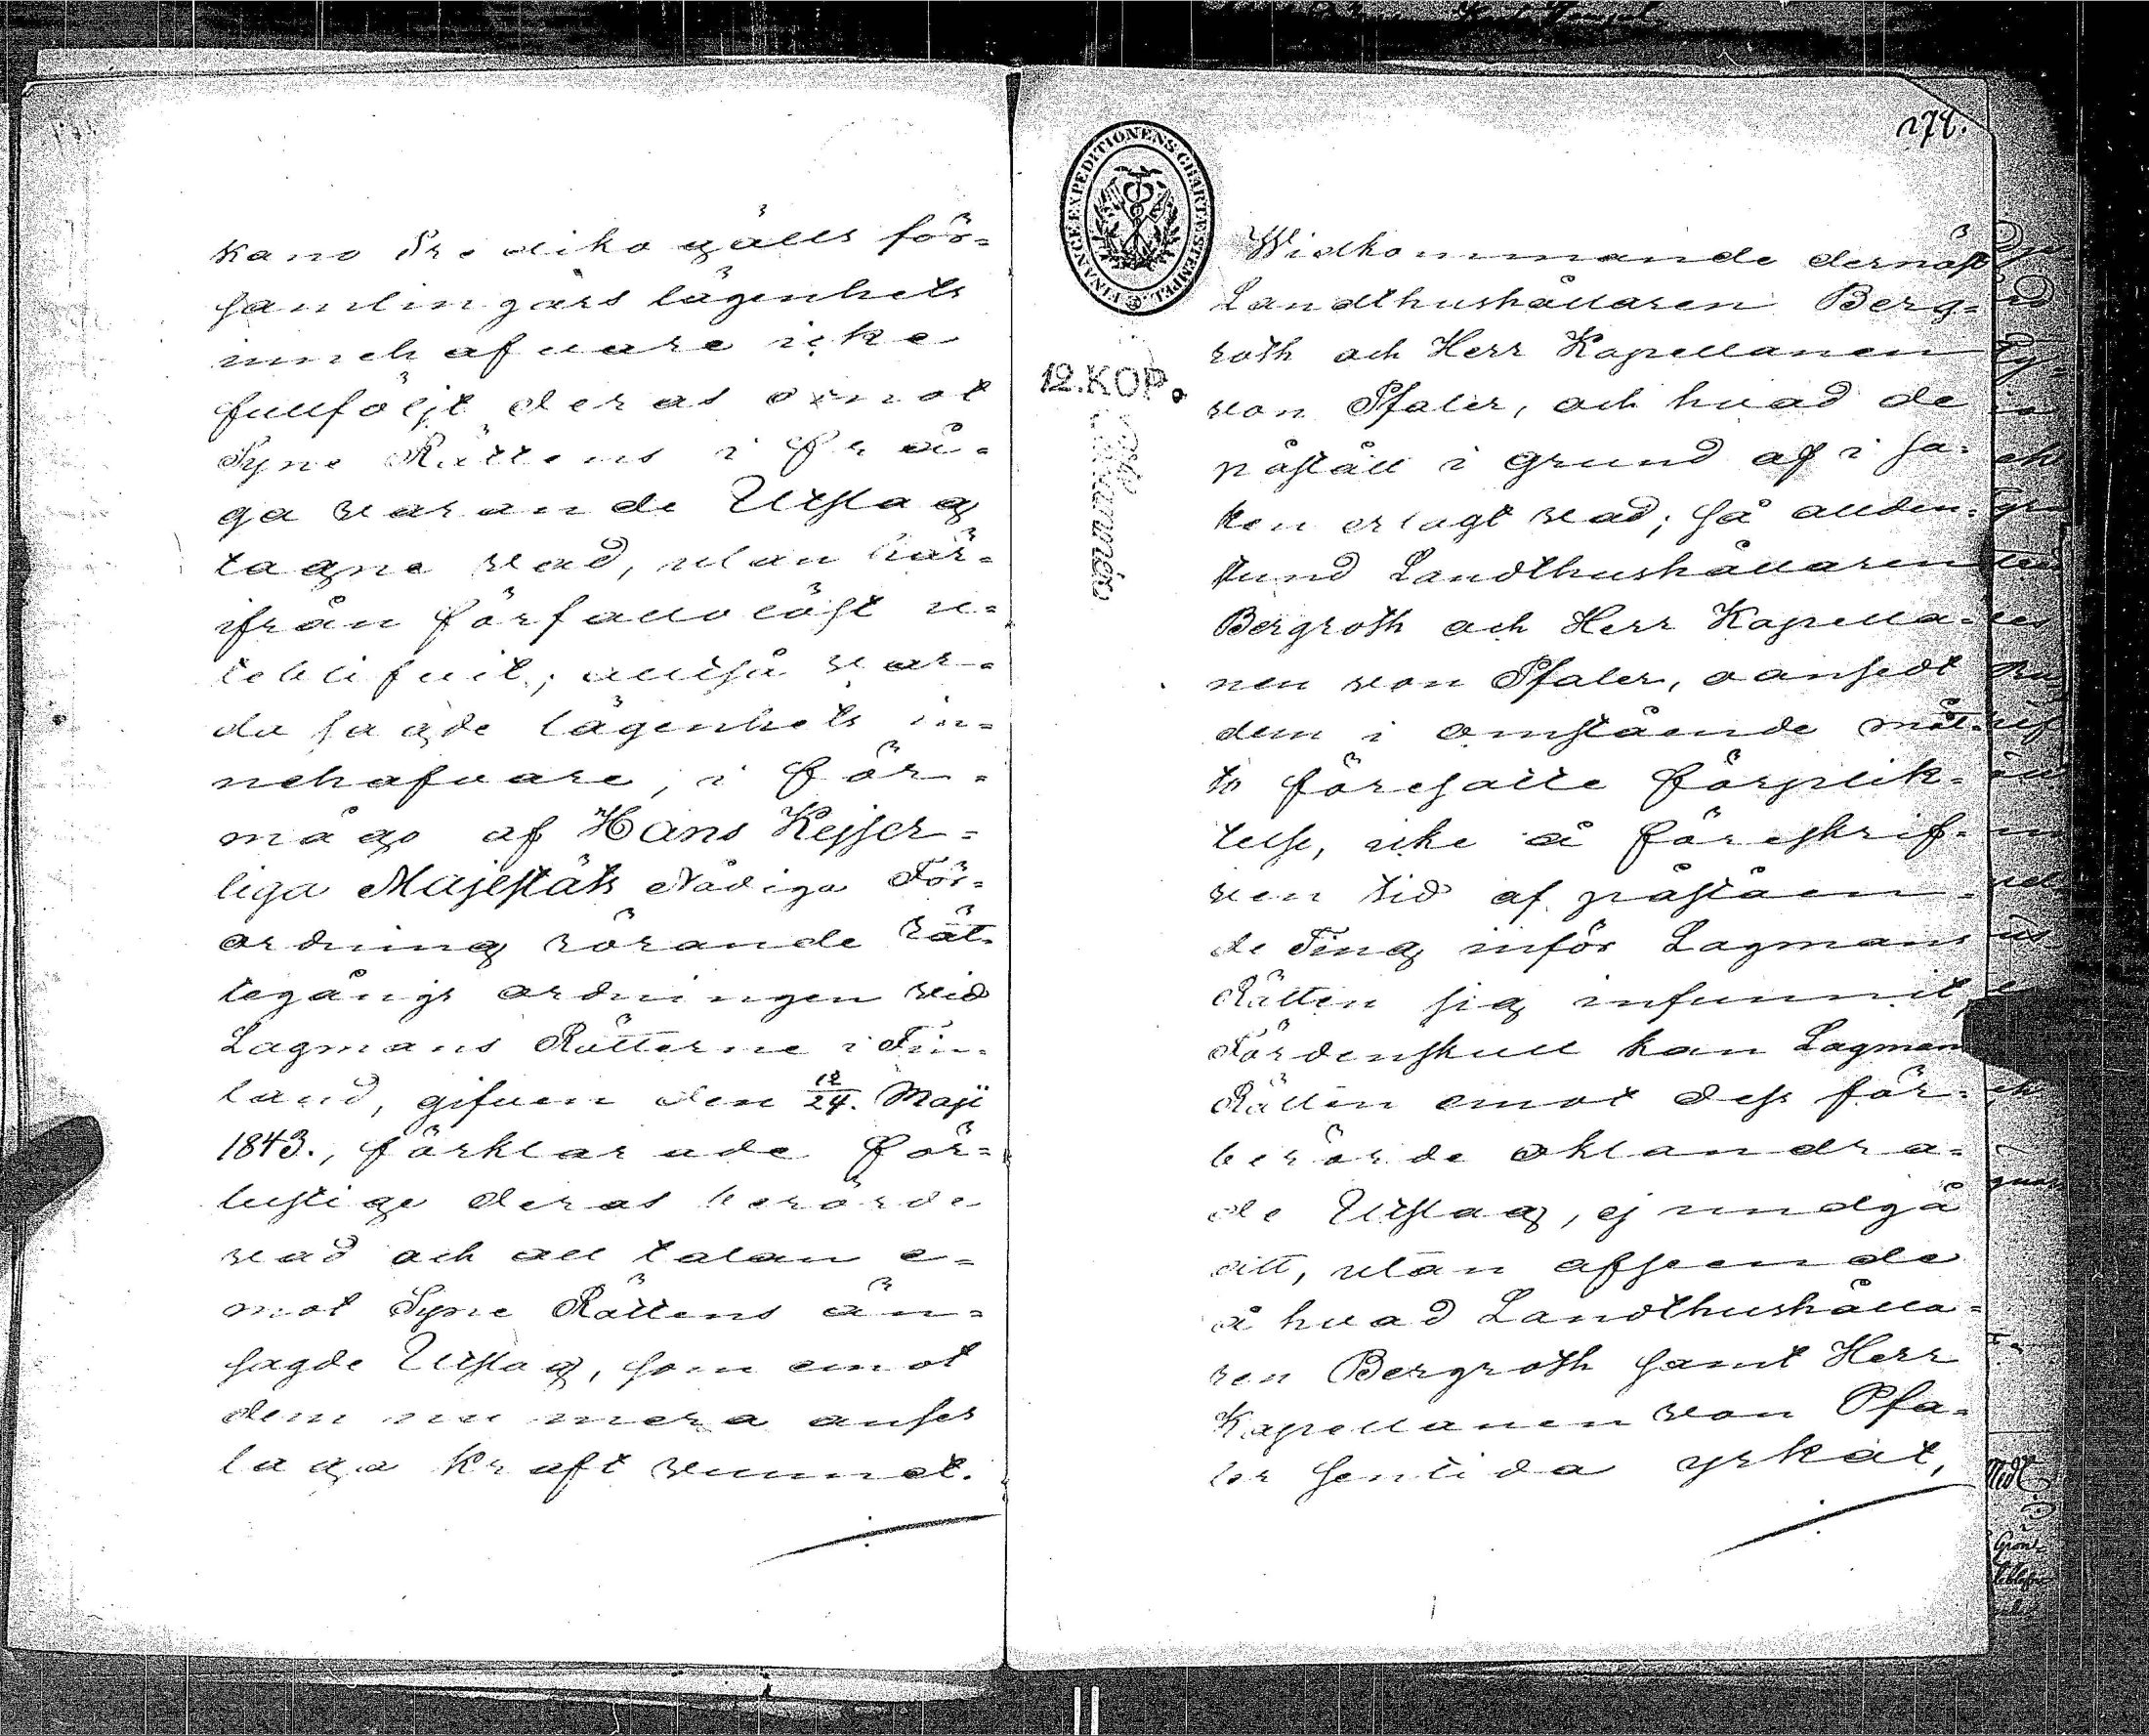 kano Prediko gälls för=
samlingars lägenhets
innehafvare icke
fullföljt deras emot
Syne Rättens i frå=
ga varande Utslag
tagne vad, utan här=
ifrån förfallolöst u=
teblifvit; alltså var=
da sagde lägenhets in=
nehafvare, i för=
mågo af Hans Kejser=
liga Majestäts Nådiga För=
ordning rörande Rät=
tegångs ordningen vid
Lagmans Rätterne i Fin=
land, gifven den 12/24. Maji
1843., förklarade för=
lustige deras berörde
vad och all talan e=
mot Syne Rättens än=
sagde Utslag, som emot
dem nu mera anses
laga kraft vunnet.
278.
FINANCE EXPEDITIONENS CHARTÆ STEMPEL
12.KOP.
Widkommande dernäst
Landthushållaren Berg=
roth och Herr Kapellanen
von Pfaler, och hvad de
påstått i grund af i sa=
ken erlagt vad; så alden=
stund Landthushållaren
Bergroth och Herr Kapella=
nen von Pfaler, oansedt
dem i omstående måt=
to föresatte förplik=
telse, icke å föreskrif=
ven tid af påståen=
de Ting inför Lagmans
Rätten sig infunnit,
Fördenskull kan Lagmans
Rätten emot dess för=
berörde oklandra=
de Utslag, ej undgå
att, utan afseende
å hvad Landthushålla=
ren Bergroth samt Herr
Kapellanen von Pfa=
ler sentida yrkat,